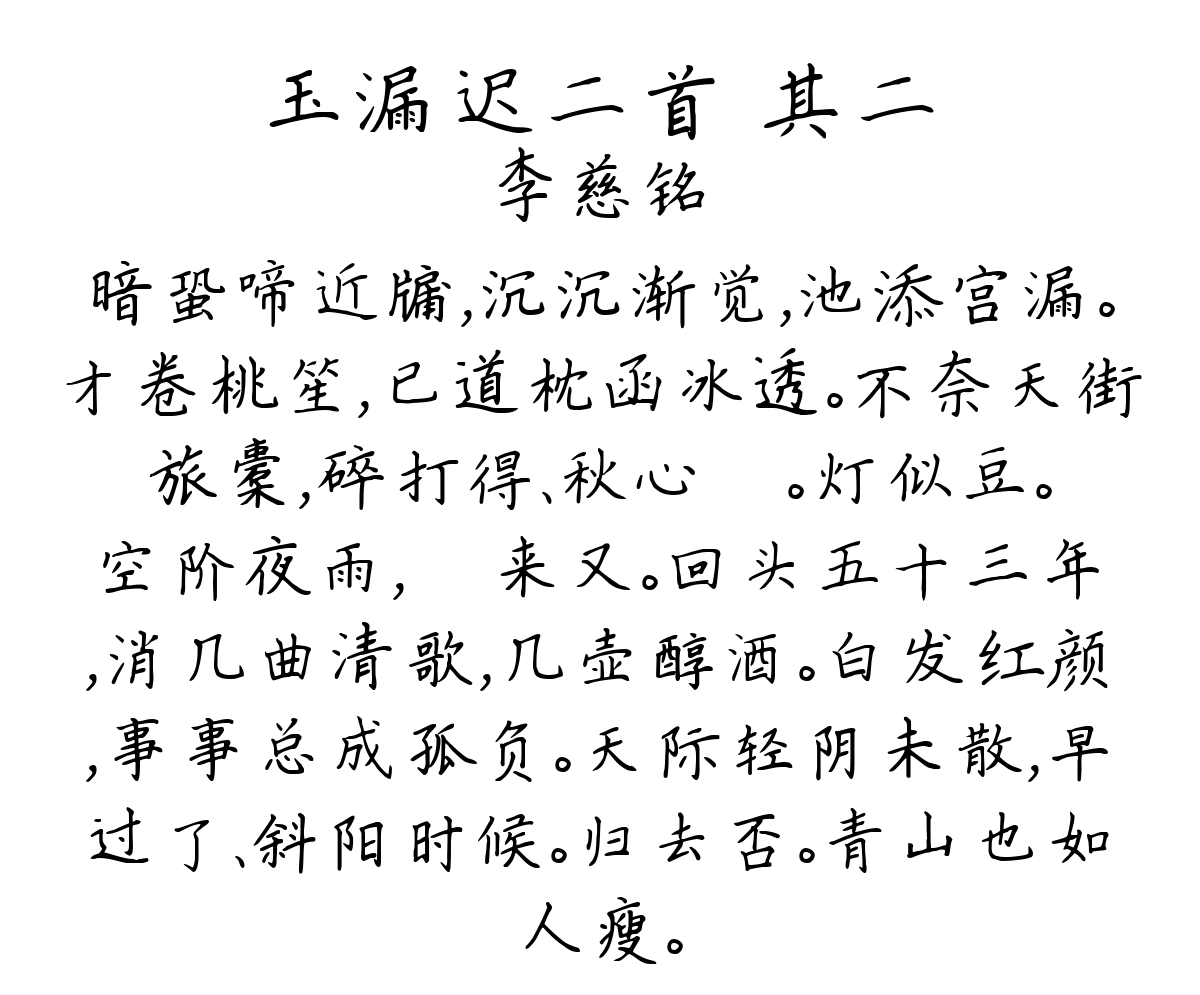 玉漏迟二首 其二
李慈铭
暗蛩啼近牖,沉沉渐觉,池添宫漏。
才卷桃笙,已道枕函冰透。不奈天街
旅橐,碎打得、秋心 。灯似豆。
空阶夜雨, 来又。回头五十三年
,消几曲清歌,几壶醇酒。白发红颜
,事事总成孤负。天际轻阴未散,早
过了、斜阳时候。归去否。青山也如
人瘦。